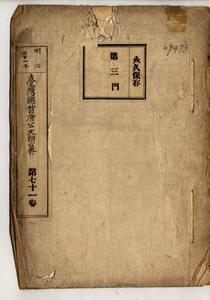 永久保存
第三門
9473
明治
臺灣總督府公文類纂
第七十一卷